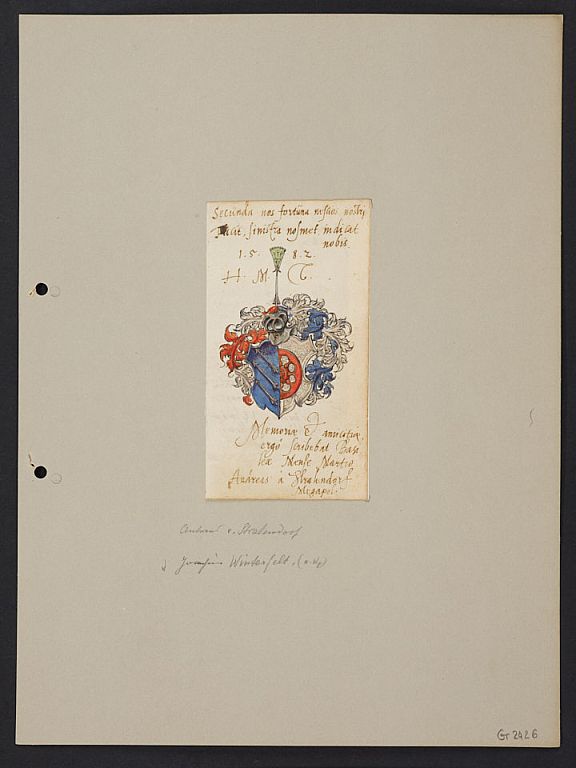 Secunda nos fortuna nescios nostri
facit, sinistra nosmet indicat
nobis
1. 5. 8. 2.
H. M. C.
Memoriæ & amicitiæ
ergo scribebat Basi
leæ Mense Martio
Andreas à Stralndorf
Megapol:
v. Stralendorf
Joachim Winterfelt.
Gr 2426